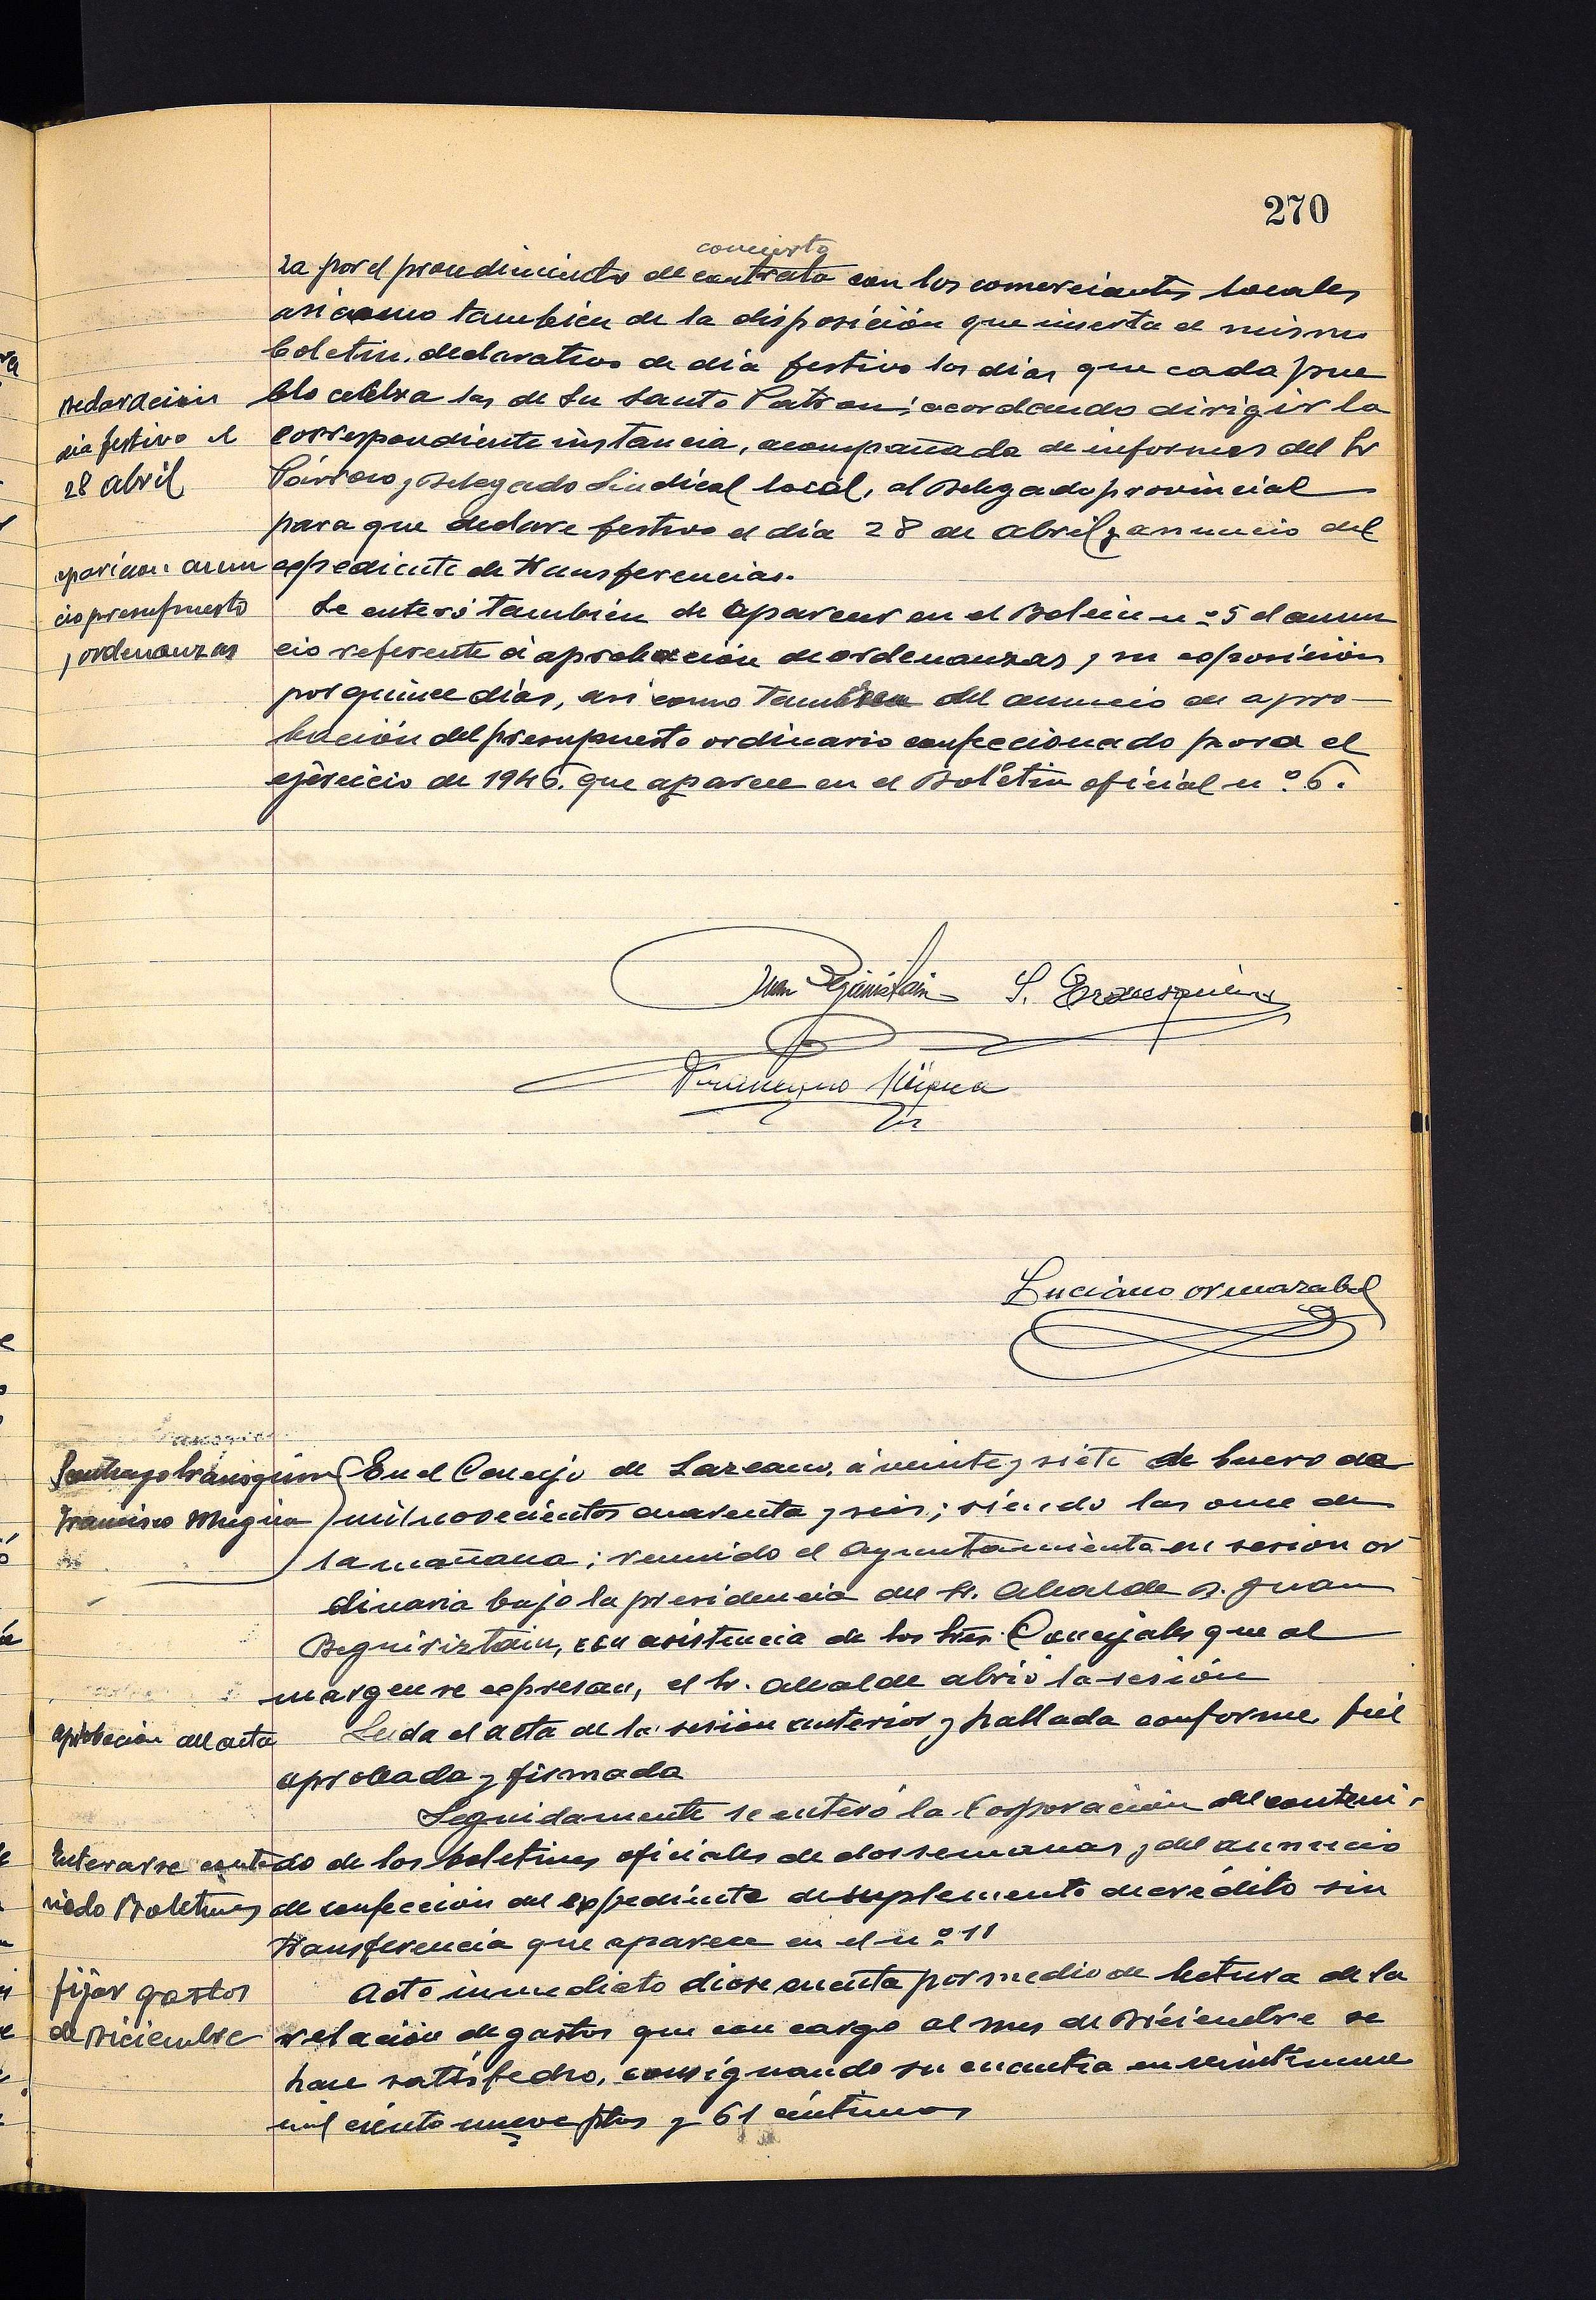 270
concierto
za por el procedimiento de contrata con los comerciantes locales
asi como tambien de la disposición que inserta el mismo
boletin. declarativo de dia festivo los dias que cada pue
Declaracion
dia festivo el
28 abril
blo celebra las de su Santo Patron; acordando dirigir la
correspondiente instancia, acompañada de informes del Sr
Párroco y Delegado Sindical local, al Delegado provincial
para que declare festivo el dia 28 de abril y anuncio del
expediente de transferencias.
aparicion anun
cio presupuesto
y ordenanzas
Se enteró también de aparecer en el Boletin nº 5 el anun
cio referente á aprobación de ordenanzas y su exposición
por quince dias, asi como tambien del anuncio de apro-
bación del presupuesto ordinario confeccionado para el
ejercicio de 1946. que aparece en el Boletin oficial nº 6.
Juan Beguiristain S.
Francisco Múgica
Luciano Ormazabal
Santiago
Francisco Mugica
En el Concejo de Lazcano, á veinte y siete de Enero de
mil novecientos cuarenta y seis; siendo las once de
la mañana; reunido el Ayuntamiento en sesion or
dinaria bajo la presidencia del Sr. Alcalde D. Juan
Beguiriztain, con asistencia de los Sres. Concejales que al
margen se expresan, el Sr. Alcalde abrió la sesión
aprobacion del acta
Leida el acta de la sesión anterior y hallada conforme, fué
aprobada y firmada
Seguidamente se enteró la Corporación del conteni-
Enterarse conte
nido Boletines
do de los boletines oficiales de dos semanas y del anuncio
de confección del expediente de suplemento de crédito sin
transferencia que aparece en el nº 11
fijar gastos
de Diciembre
Acto inmediato diose cuenta por medio de lectura de la
relación de gastos que con cargo al mes de Diciembre se
han satisfecho, consignando su cuantia en veintinueve
mil ciento nueve ptas y 61 céntimos